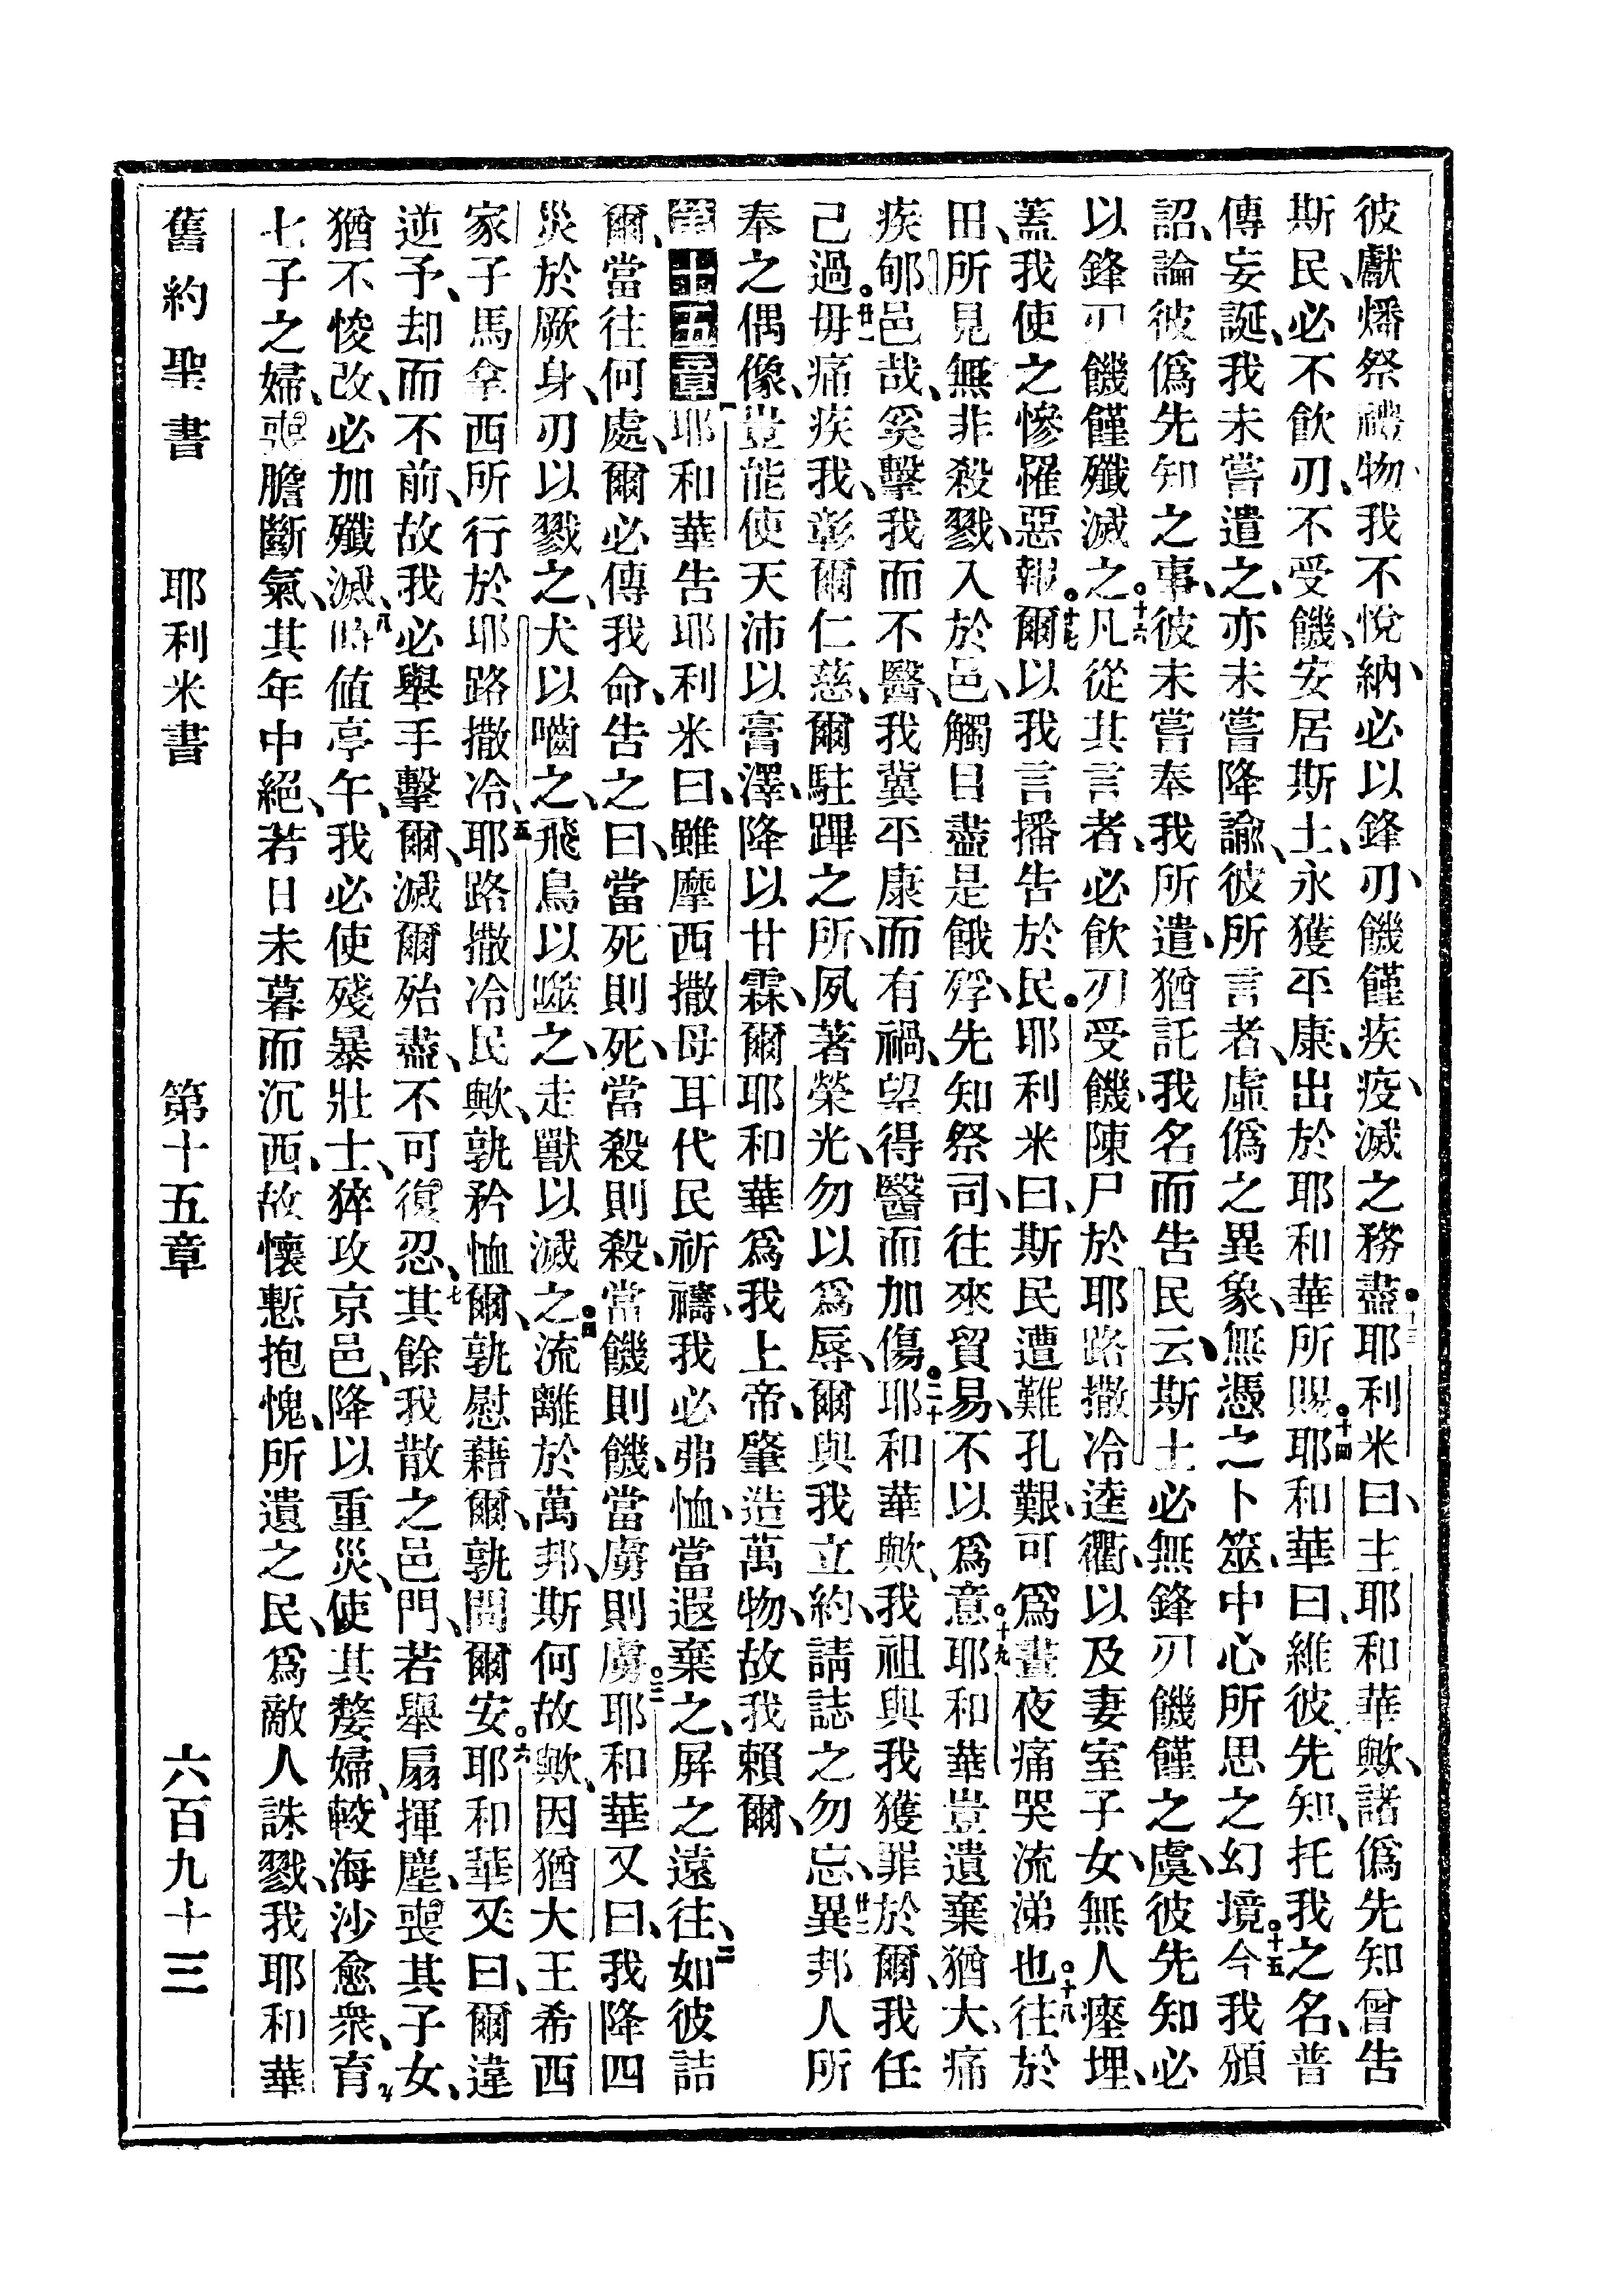 彼獻燔祭禮物、我不悅納、必以鋒刃、饑饉疾疫、滅之務盡。十三耶利米曰、主耶和華歟、諸僞先知曾告
斯民、必不飲刃、不受饑、安居斯土、永獲平康、出於耶和華所賜。十四耶和華曰、維彼先知、托我之名、普
傳妄誕、我未嘗遣之、亦未嘗降諭、彼所言者、虛僞之異象、無憑之卜筮、中心所思之幻境。十五今我頒
詔、論彼僞先知之事、彼未嘗奉我所遣、猶託我名而告民云、斯土必無鋒刃饑饉之虞、彼先知必
以鋒刃饑饉殲滅之。十六凡從其言者、必飲刃受饑、陳尸於耶路撒冷逵衢、以及妻室子女、無人瘞埋、
蓋我使之慘罹惡報。十七爾以我言播告於民。耶利米曰、斯民遭難孔艱、可爲晝夜痛哭流涕也。十八往於
田、所見無非殺戮、入於邑、觸目盡是餓殍、先知祭司、往來貿易、不以爲意。十九耶和華豈遺棄猶大、痛
疾郇邑哉、奚擊我而不醫、我冀平康而有禍、望得醫而加傷。二十耶和華歟、我祖與我獲罪於爾、我任
己過。廿一毋痛疾我、彰爾仁慈、爾駐蹕之所、夙著榮光、勿以爲辱、爾與我立約、請誌之勿忘、廿二異邦人所
奉之偶像、豈能使天沛以膏澤、降以甘霖、爾耶和華爲我上帝、肇造萬物、故我賴爾、
第十五章一耶和華告耶利米曰、雖摩西撒母耳代民祈禱、我必弗恤、當遐棄之、屏之遠往、二如彼詰
爾、當往何處、爾必傳我命、告之曰、當死則死、當殺則殺、當饑則饑、當虜則虜。三耶和華又曰、我降四
災於厥身、刃以戮之、犬以嚙之、飛鳥以噬之、走獸以滅之。四流離於萬邦、斯何故歟、因猶大王希西
家子馬拿西所行於耶路撒冷、五耶路撒冷民歟、孰矜恤爾、孰慰藉爾、孰問爾安。六耶和華又曰、爾違
逆予、却而不前、故我必舉手擊爾、滅爾殆盡、不可復忍、七其餘我散之邑門、若舉扇揮塵、喪其子女、
猶不悛改、必加殲滅、八時值亭午、我必使殘暴壯士、猝攻京邑、降以重災、使其嫠婦、較海沙愈衆、九育
七子之婦、喪膽斷氣、其年中絕、若日未暮而沉西、故懷慙抱愧、所遺之民、爲敵人誅戮、我耶和華
舊約聖書 耶利米書 第十五章 六百九十三